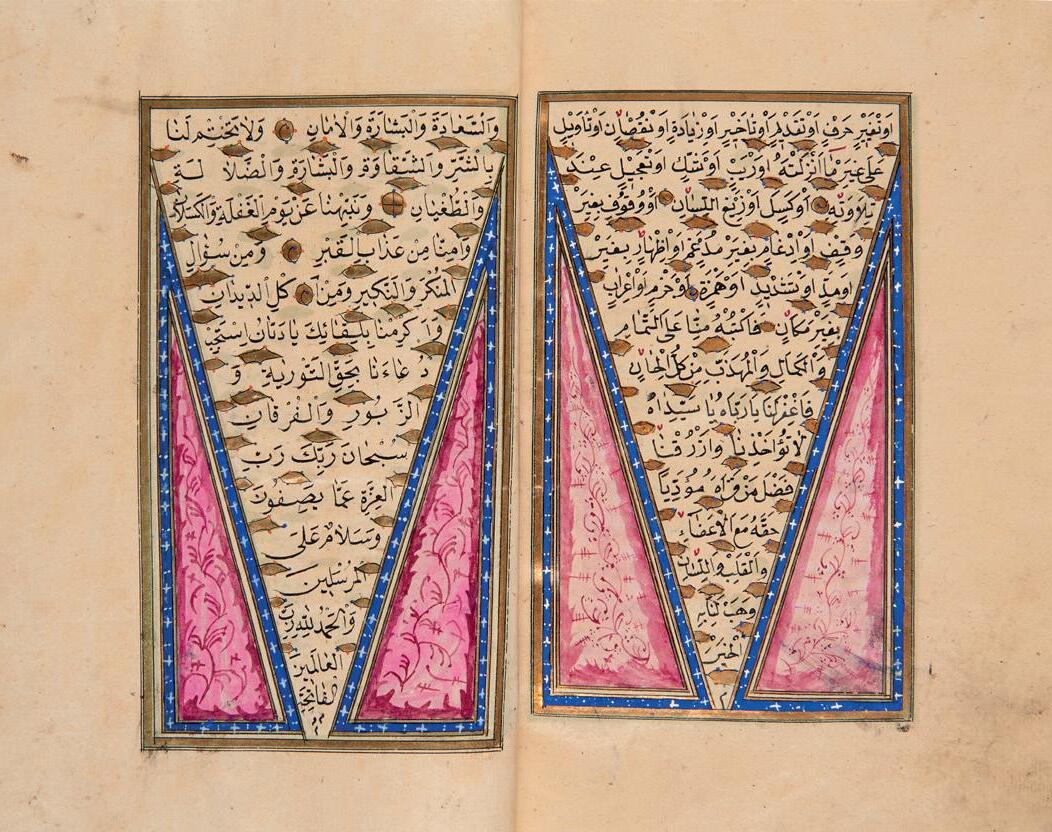 اوتغيير حرف اوتقديم اوتاخير اوزيادة اونقصان اوتاويل
على غير ما انزلته اوريب اوشك اوتعجيل عند
تلاوته اوكسل اوزيغ اللسان اووقوف بغير
وقف اوادغام بغير مدغم اواظهار بغير
اومد اوتشديد اوهمزة اوجزم اواعراب
بغير مكان فاكتبه منا على التمام
والكمال والمهذب من كل الحان
فاغفرلنا يارباه يا سيداه
لا تؤاخذنا وارزقنا
فضل من قراه مؤديا
حقه مع الاعضاء
والقلب واللسان
وهب لنا به
الخير
وَالسَّعَادَةِ وَالْبَشَارَةِ وَالْاَمَانِ وَلَا تَخْتِمْ لَنَا
بِالشَّرِّ وَالشَّقَاوَةِ وَالضَّلَا لَةِ
وَالطُّغْيَانِ وَنَبِّهْنَا
وَاٰمِنَّا مِنْ عَذَابِ الْقَبْرِ وَمِنْ سُؤَالِ
الْمُنْكَرِ وَالنَّكِيرِ وَمِنْ اَكْلِ الدِّيدَانِ
وَاَكْرِمْنَا بِلِقَائِكَ يَادَيَّانُ اِسْتَجِبْ
دُعَاءَنَا بِحَقِّ التَّوْرٰيةِ وَ
الزَّبُورِ وَالْفُرْقَانِ
سُبْحَانَ رَبِّكَ رَبِّ
الْعِزَّةِ عَمَّا يَصِفُونَ
وَسَلَامٌ عَلَى
الْمُرْسَلِينَ
وَالْحَمْدُ لِلّٰهِ رَبِّ
الْعَالَمِينَ
الفَاتِحَة